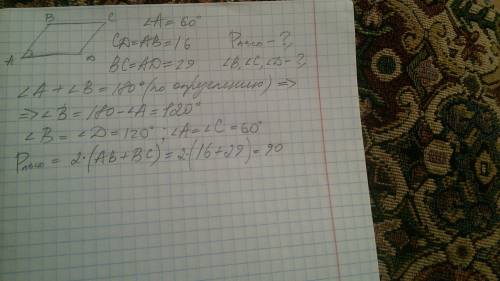 B C
A D
∠A = 60°
CD=AB=16 Pавсд - ?,
BC=AD=29 ∠B,∠C,∠D-?,
∠A + ∠B = 180° (по определению) =>
=> ∠B = 180 - ∠A = 120°
∠B = ∠D = 120° ; ∠A = ∠C = 60°
Pавсд = 2·(AB+BC) = 2(16+29) = 90